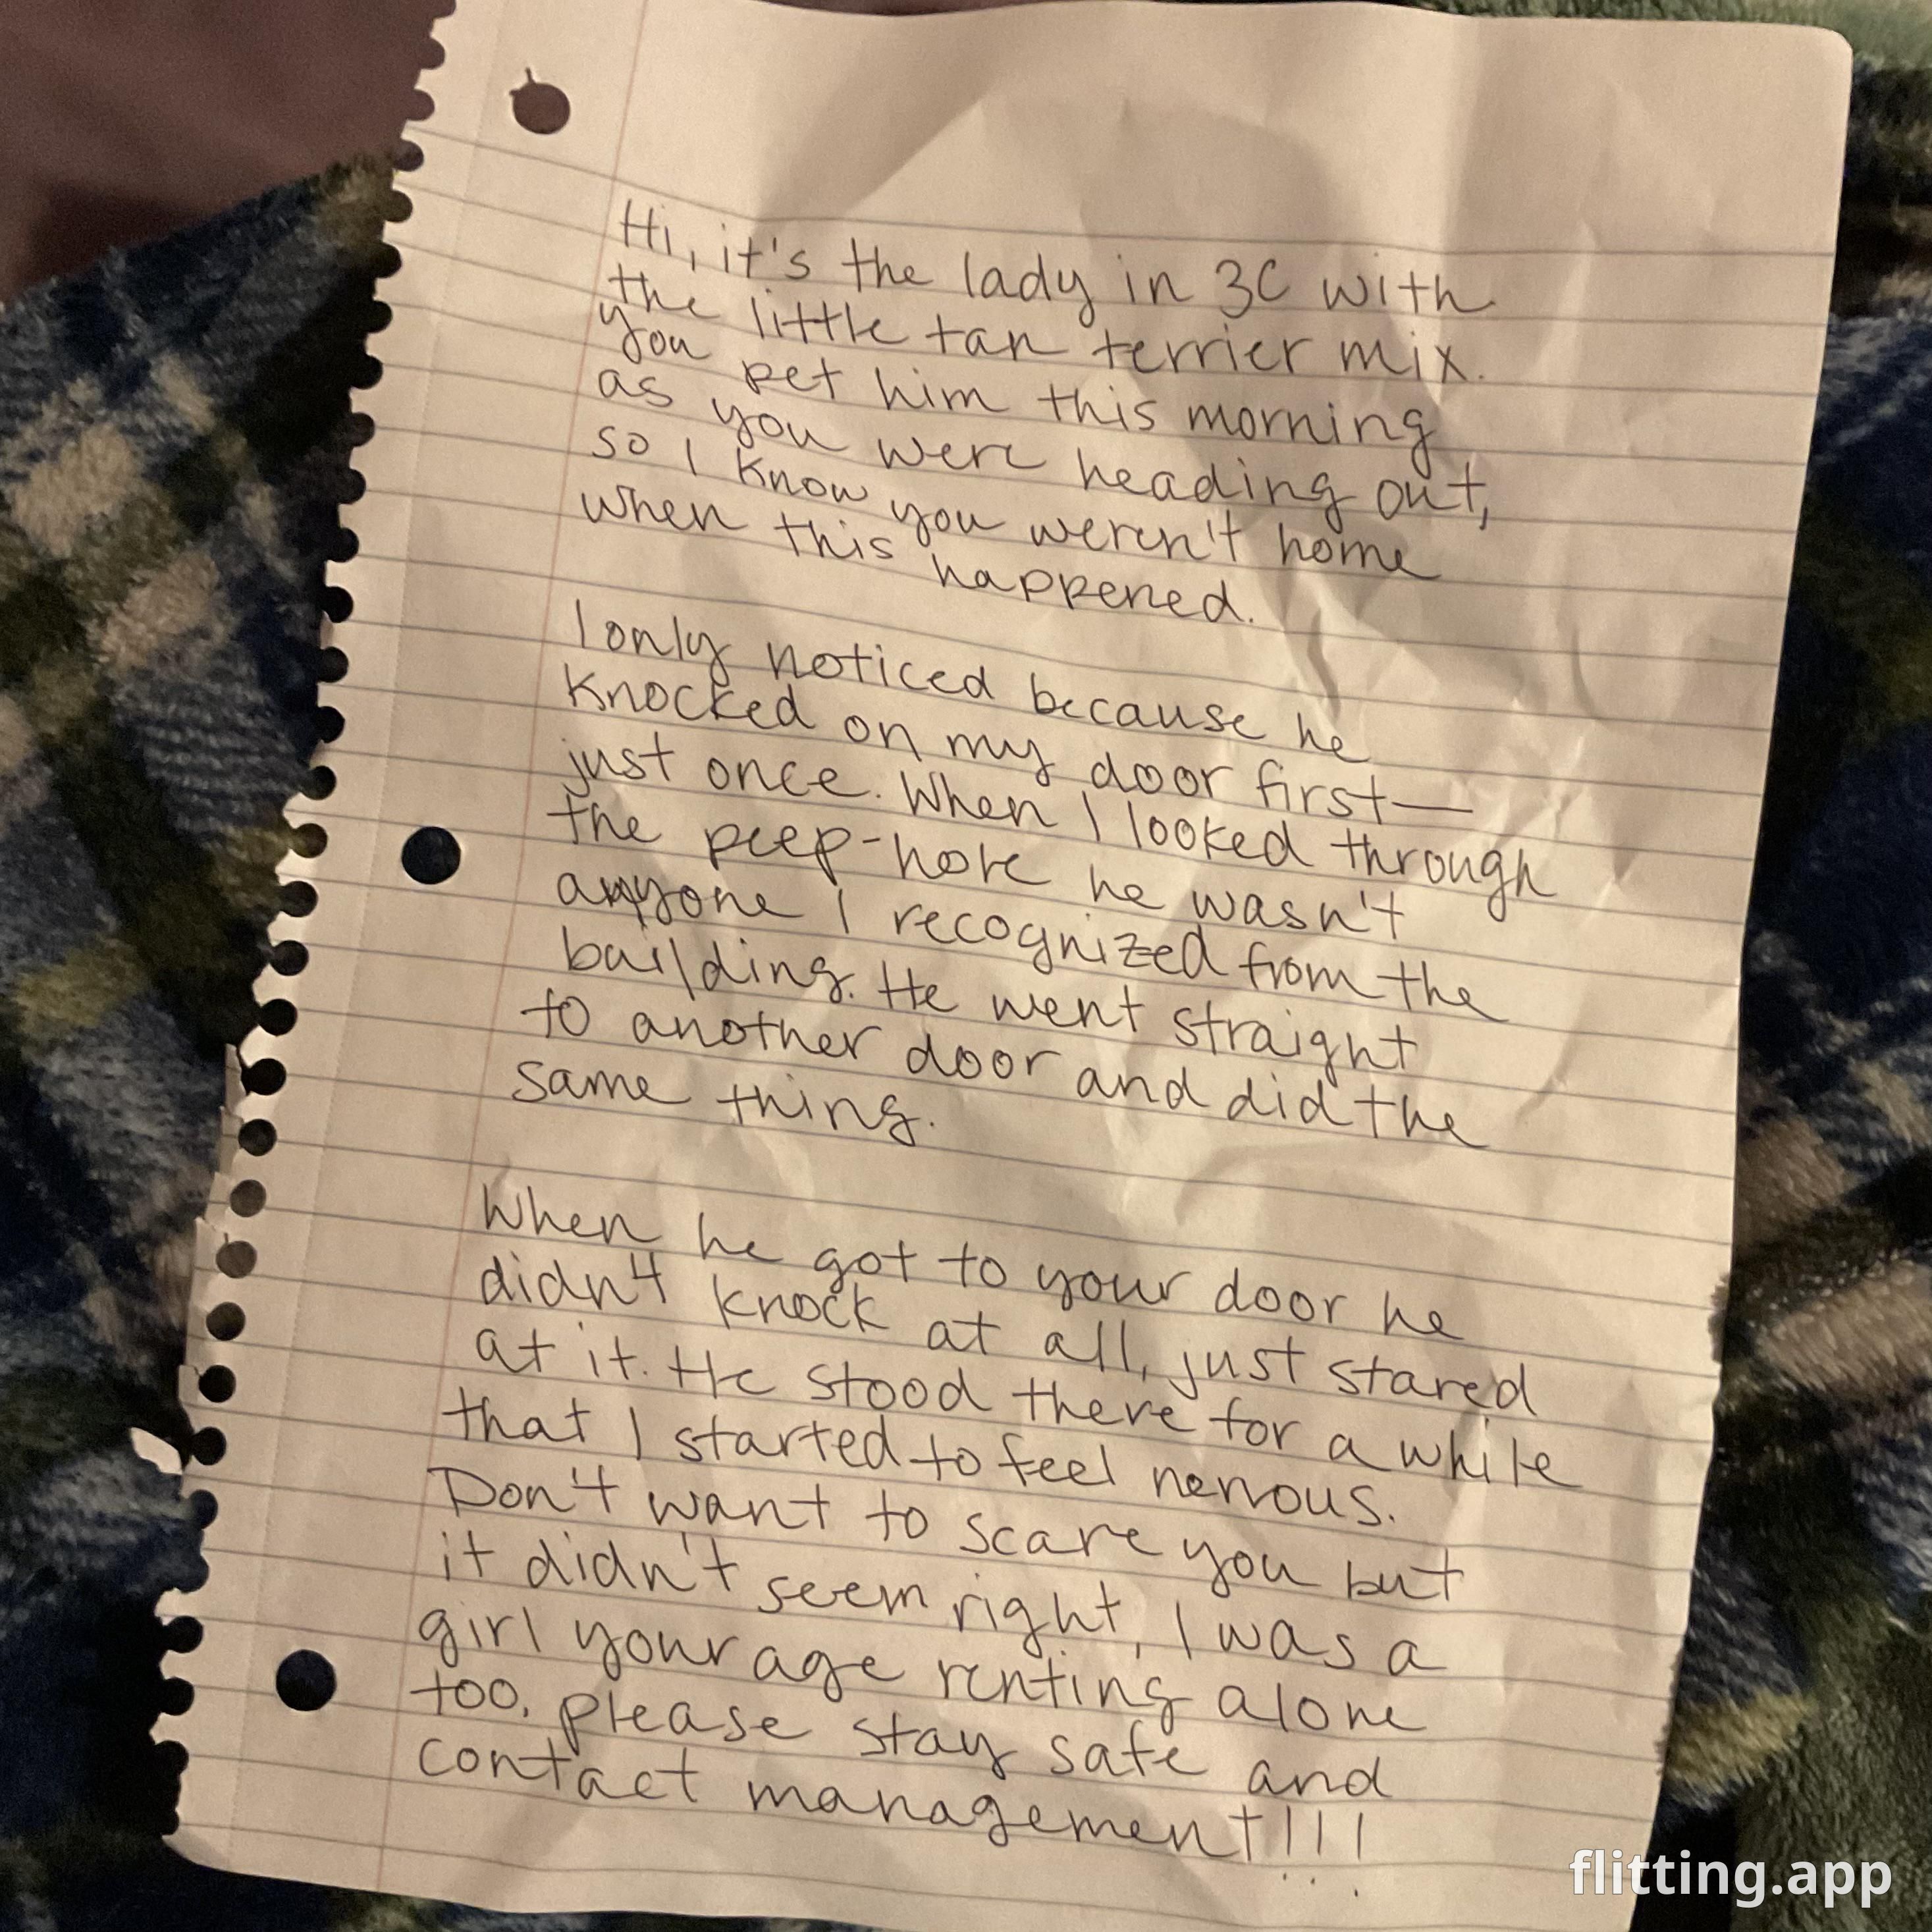 Hi, it's the lady in 3C with
the little tan terrier mix.
You pet him this morning
as you were heading out,
so I know you weren't home
when this happened.
I only noticed because he
knocked on my door first—
just once. When I looked through
the peep-hole he wasn't
anyone I recognized from the
building. He went straight
to another door and did the
same thing.
When he got to your door he
didn't knock at all, just stared
at it. He stood there for a while
that I started to feel nervous.
Don't want to scare you but
it didn't seem right, I was a
girl your age renting alone
too, please stay safe and
contact management!!!
flitting.app